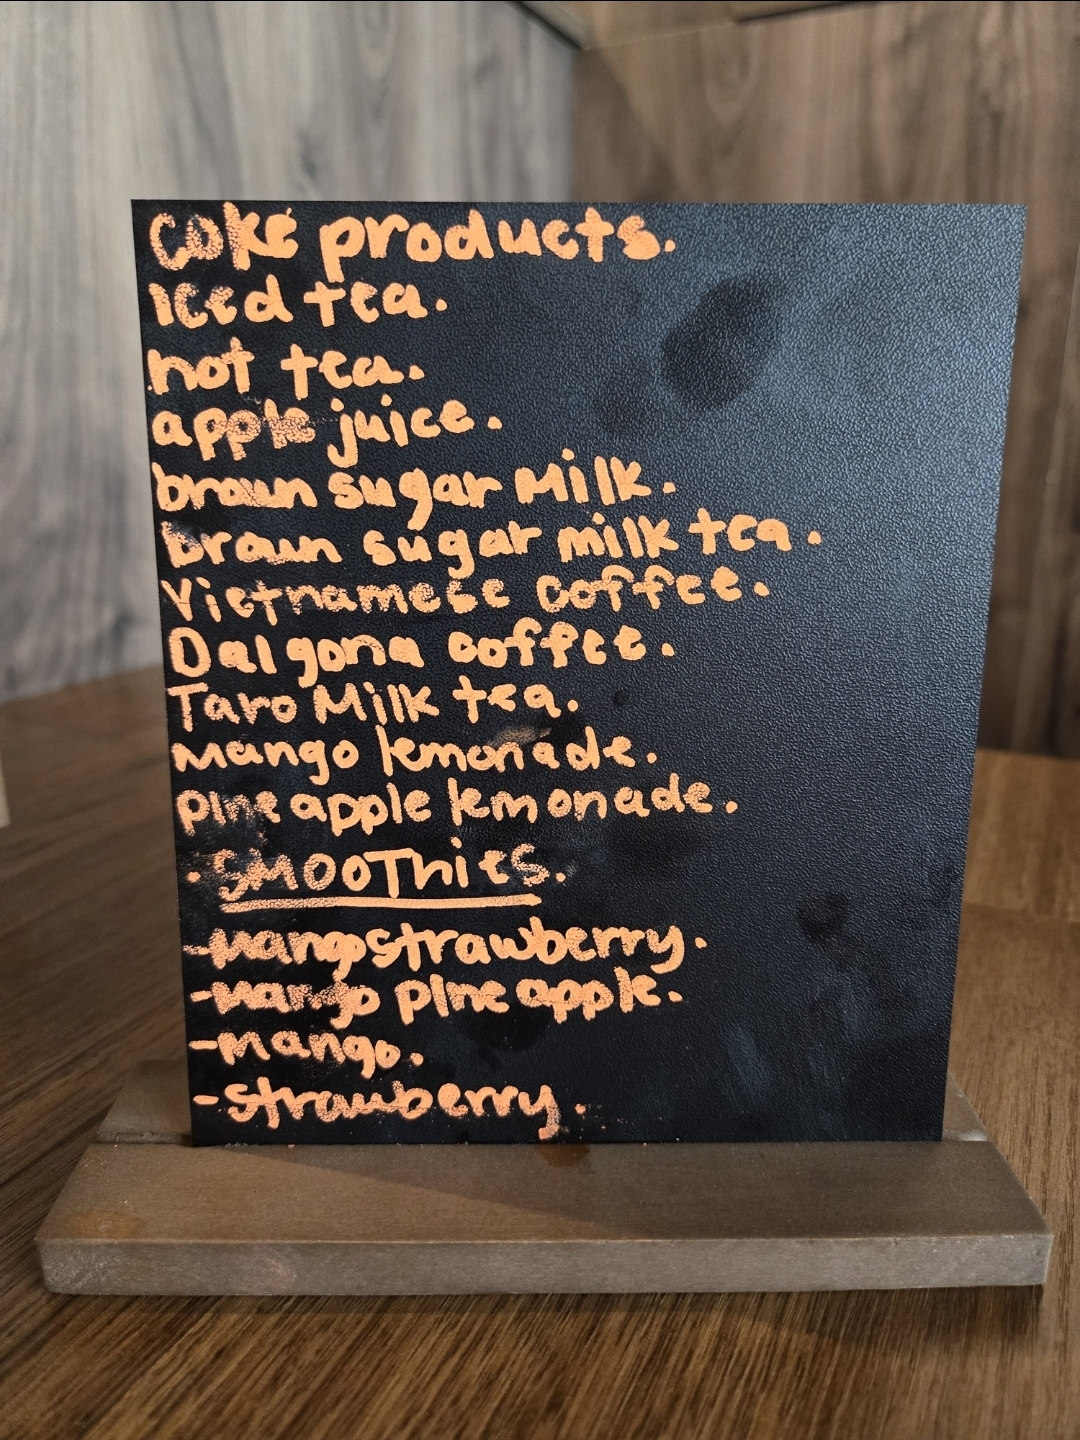 Coke products.
Iced tea.
hot tea.
apple juice.
brown sugar Milk.
brown sugar milk tea.
Vietnamese coffee.
Dalgona coffee.
Taro Milk tea.
Mango lemonade.
pineapple lemonade.
. SMOOThies.
-Mango strawberry.
-Mango pineapple.
-Mango.
-strawberry.